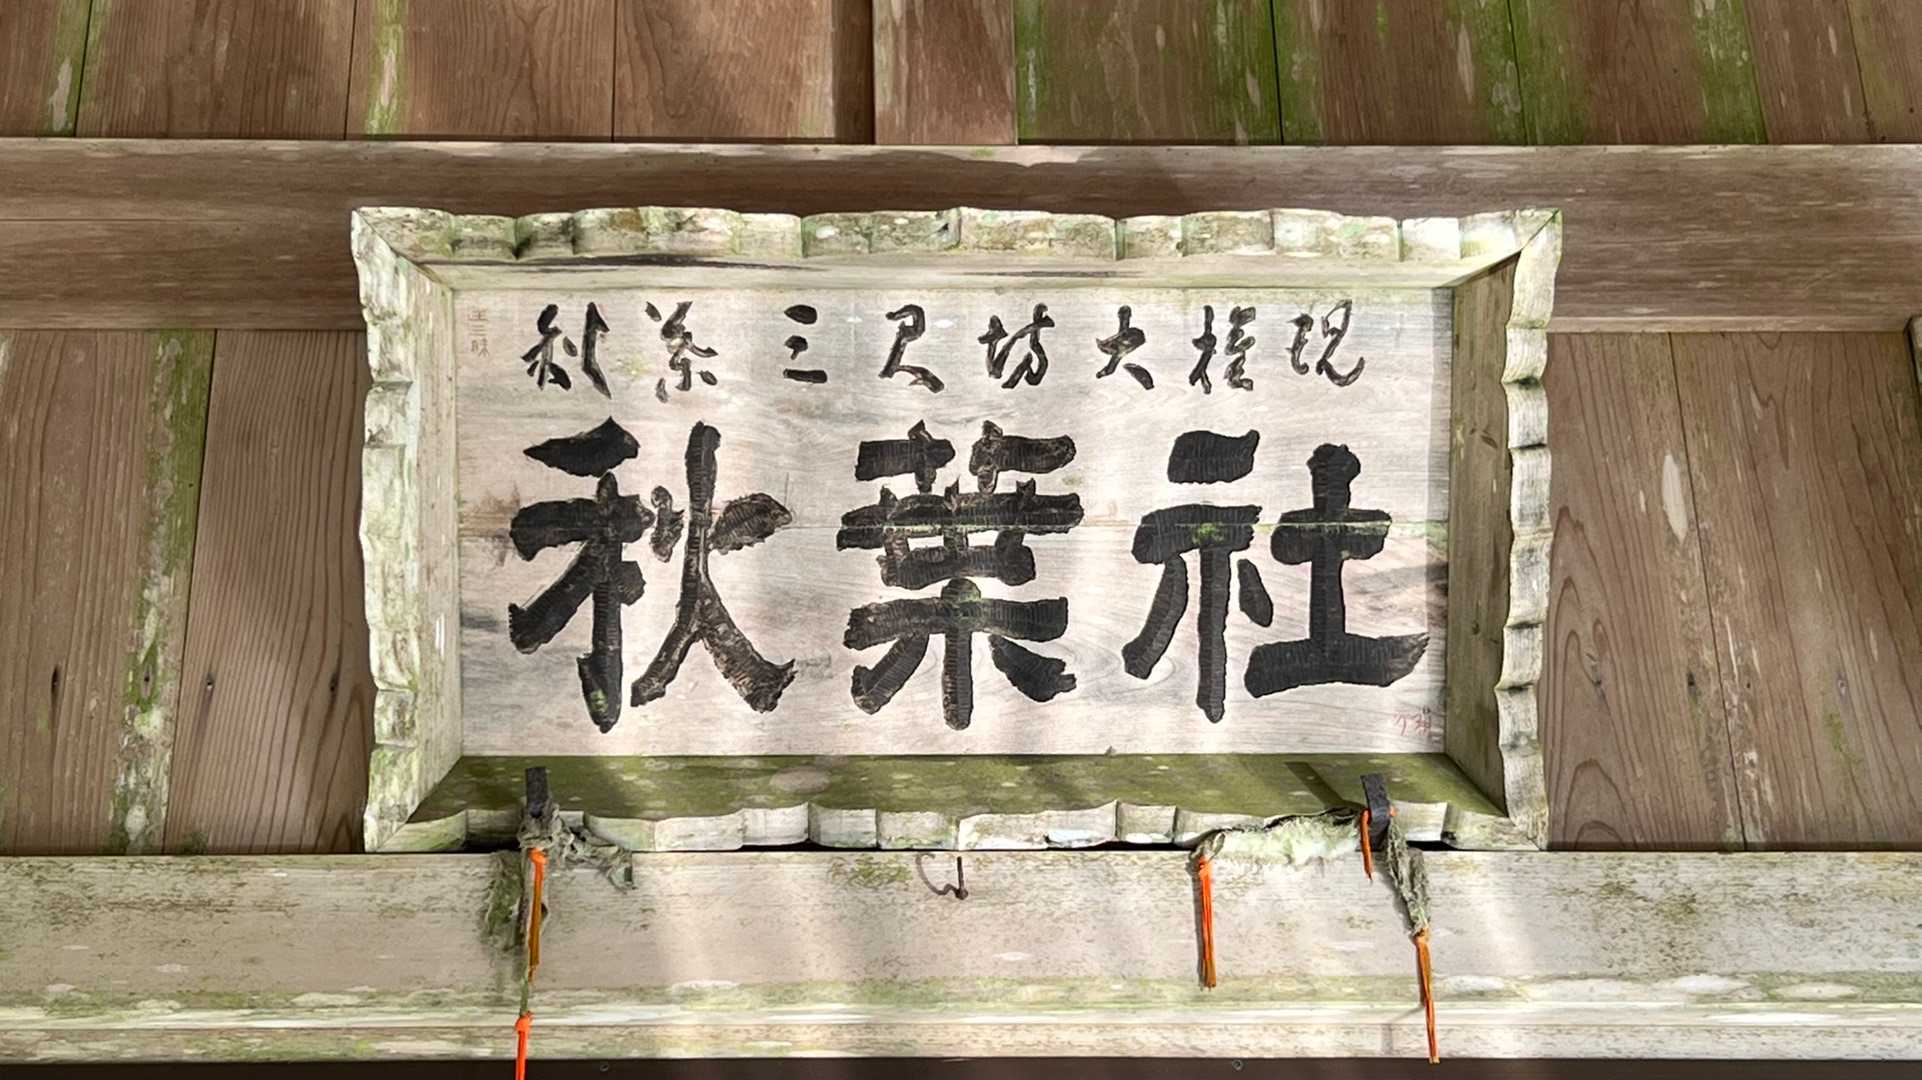 秋葉三尺坊大権現
秋葉社